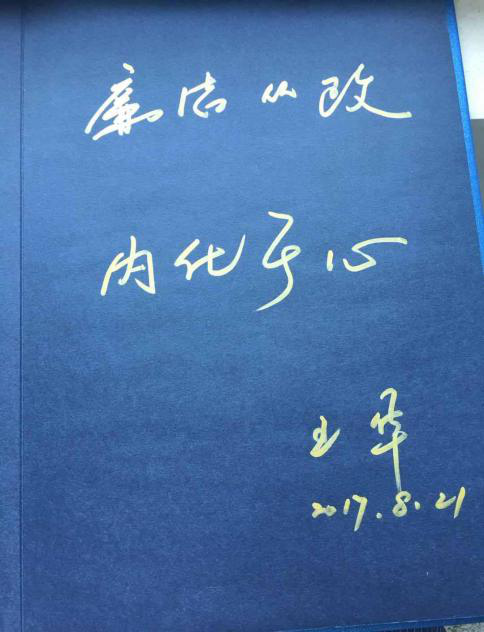 廉洁从政
内化于心
王华
2017.8.21